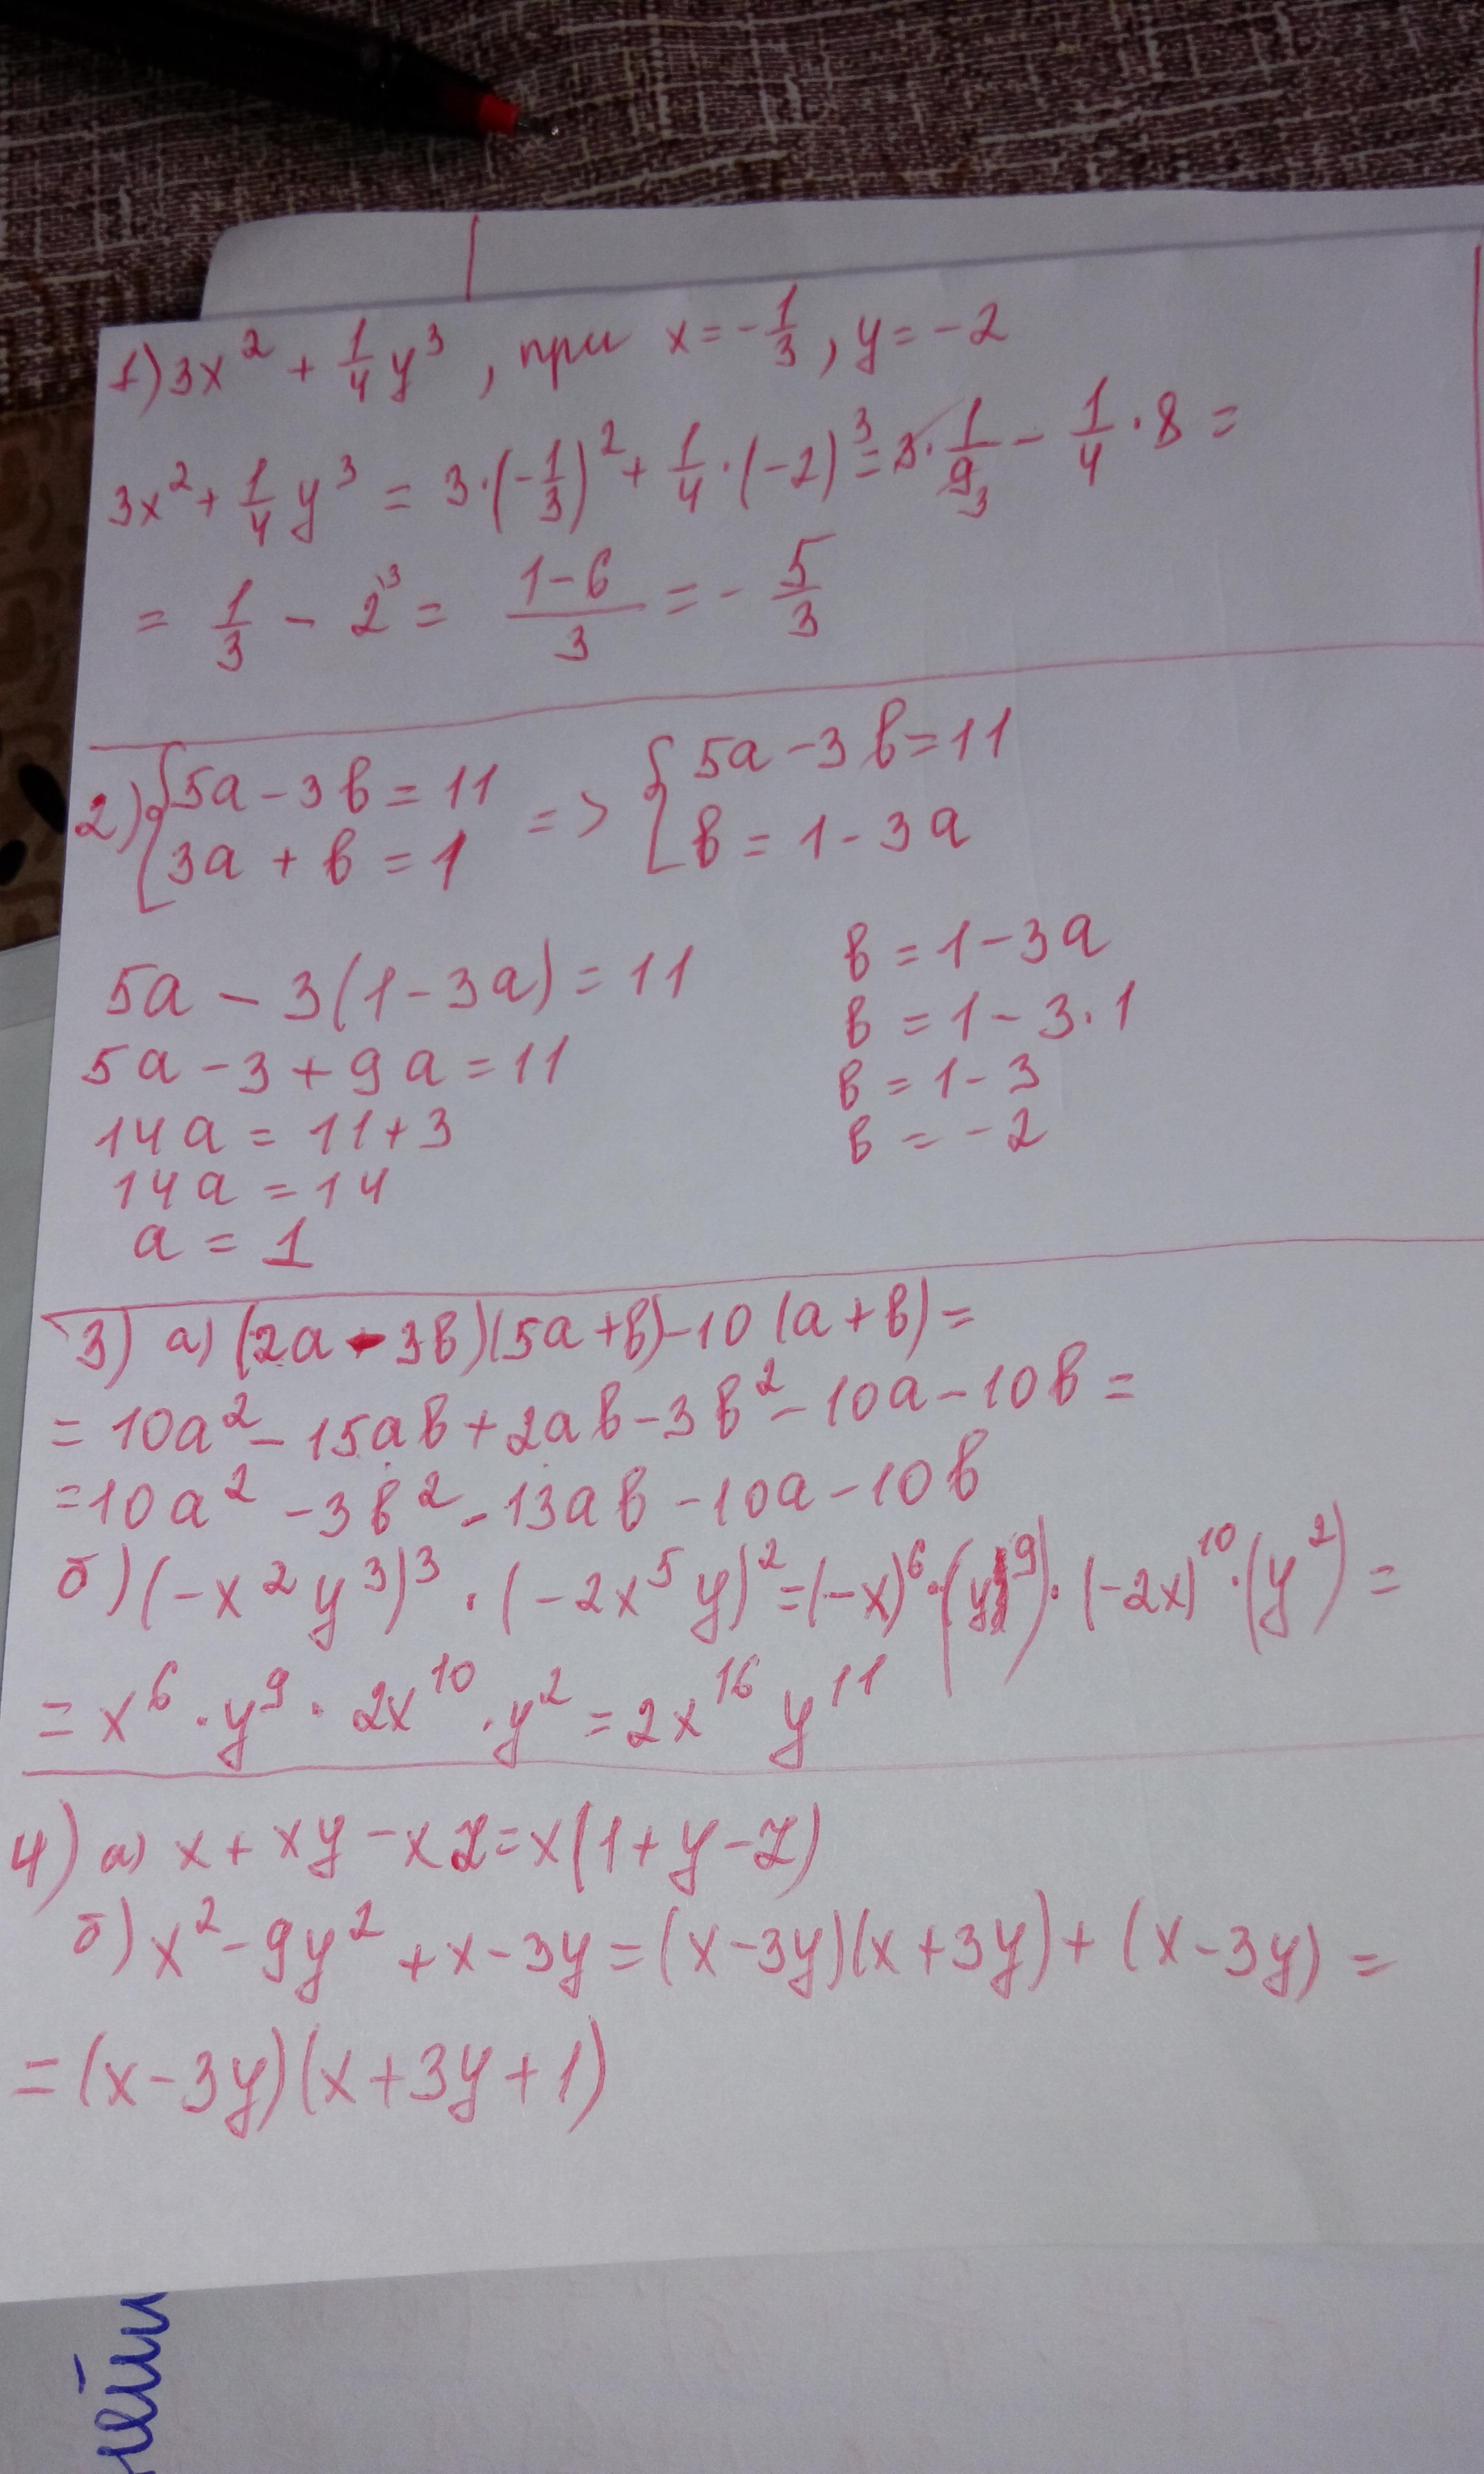 1) 3x² + 1/4 y³, при x = -1/3, y = -2
3x² + 1/4 y³ = 3·(-1/3)² + 1/4·(-2)³ = 3·1/9 3 - 1/4·8 =
= 1/3 - 2 3 = (1-6)/3 = - 5/3
2) { 5a - 3b = 11 => { 5a - 3b = 11
3a + b = 1 b = 1 - 3a
5a - 3(1 - 3a) = 11
5a - 3 + 9a = 11
14a = 11 + 3
14a = 14
a = 1
b = 1 - 3a
b = 1 - 3·1
b = 1 - 3
b = -2
3) а) (2a - 3b)(5a + b) - 10(a + b) =
= 10a² - 15ab + 2ab - 3b² - 10a - 10b =
= 10a² - 3b² - 13ab - 10a - 10b
б) (-x²y³)³ · (-2x⁵y)² = (-x)⁶·(y⁹)·(-2x)¹⁰·(y²) =
= x⁶·y⁹·2x¹⁰·y² = 2x¹⁶y¹¹
4) а) x + xy - xz = x(1 + y - z)
б) x² - 9y² + x - 3y = (x - 3y)(x + 3y) + (x - 3y) =
= (x - 3y)(x + 3y + 1)